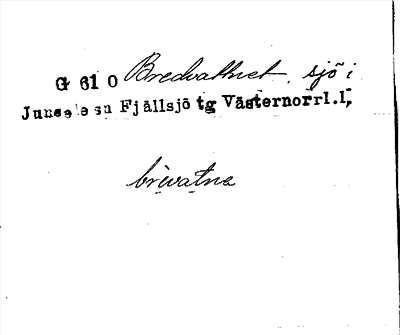 G 61 O Bredvattnet, sjö i
Junsele sn Fjällsjö tg Västernorrl.l.
brèvatna